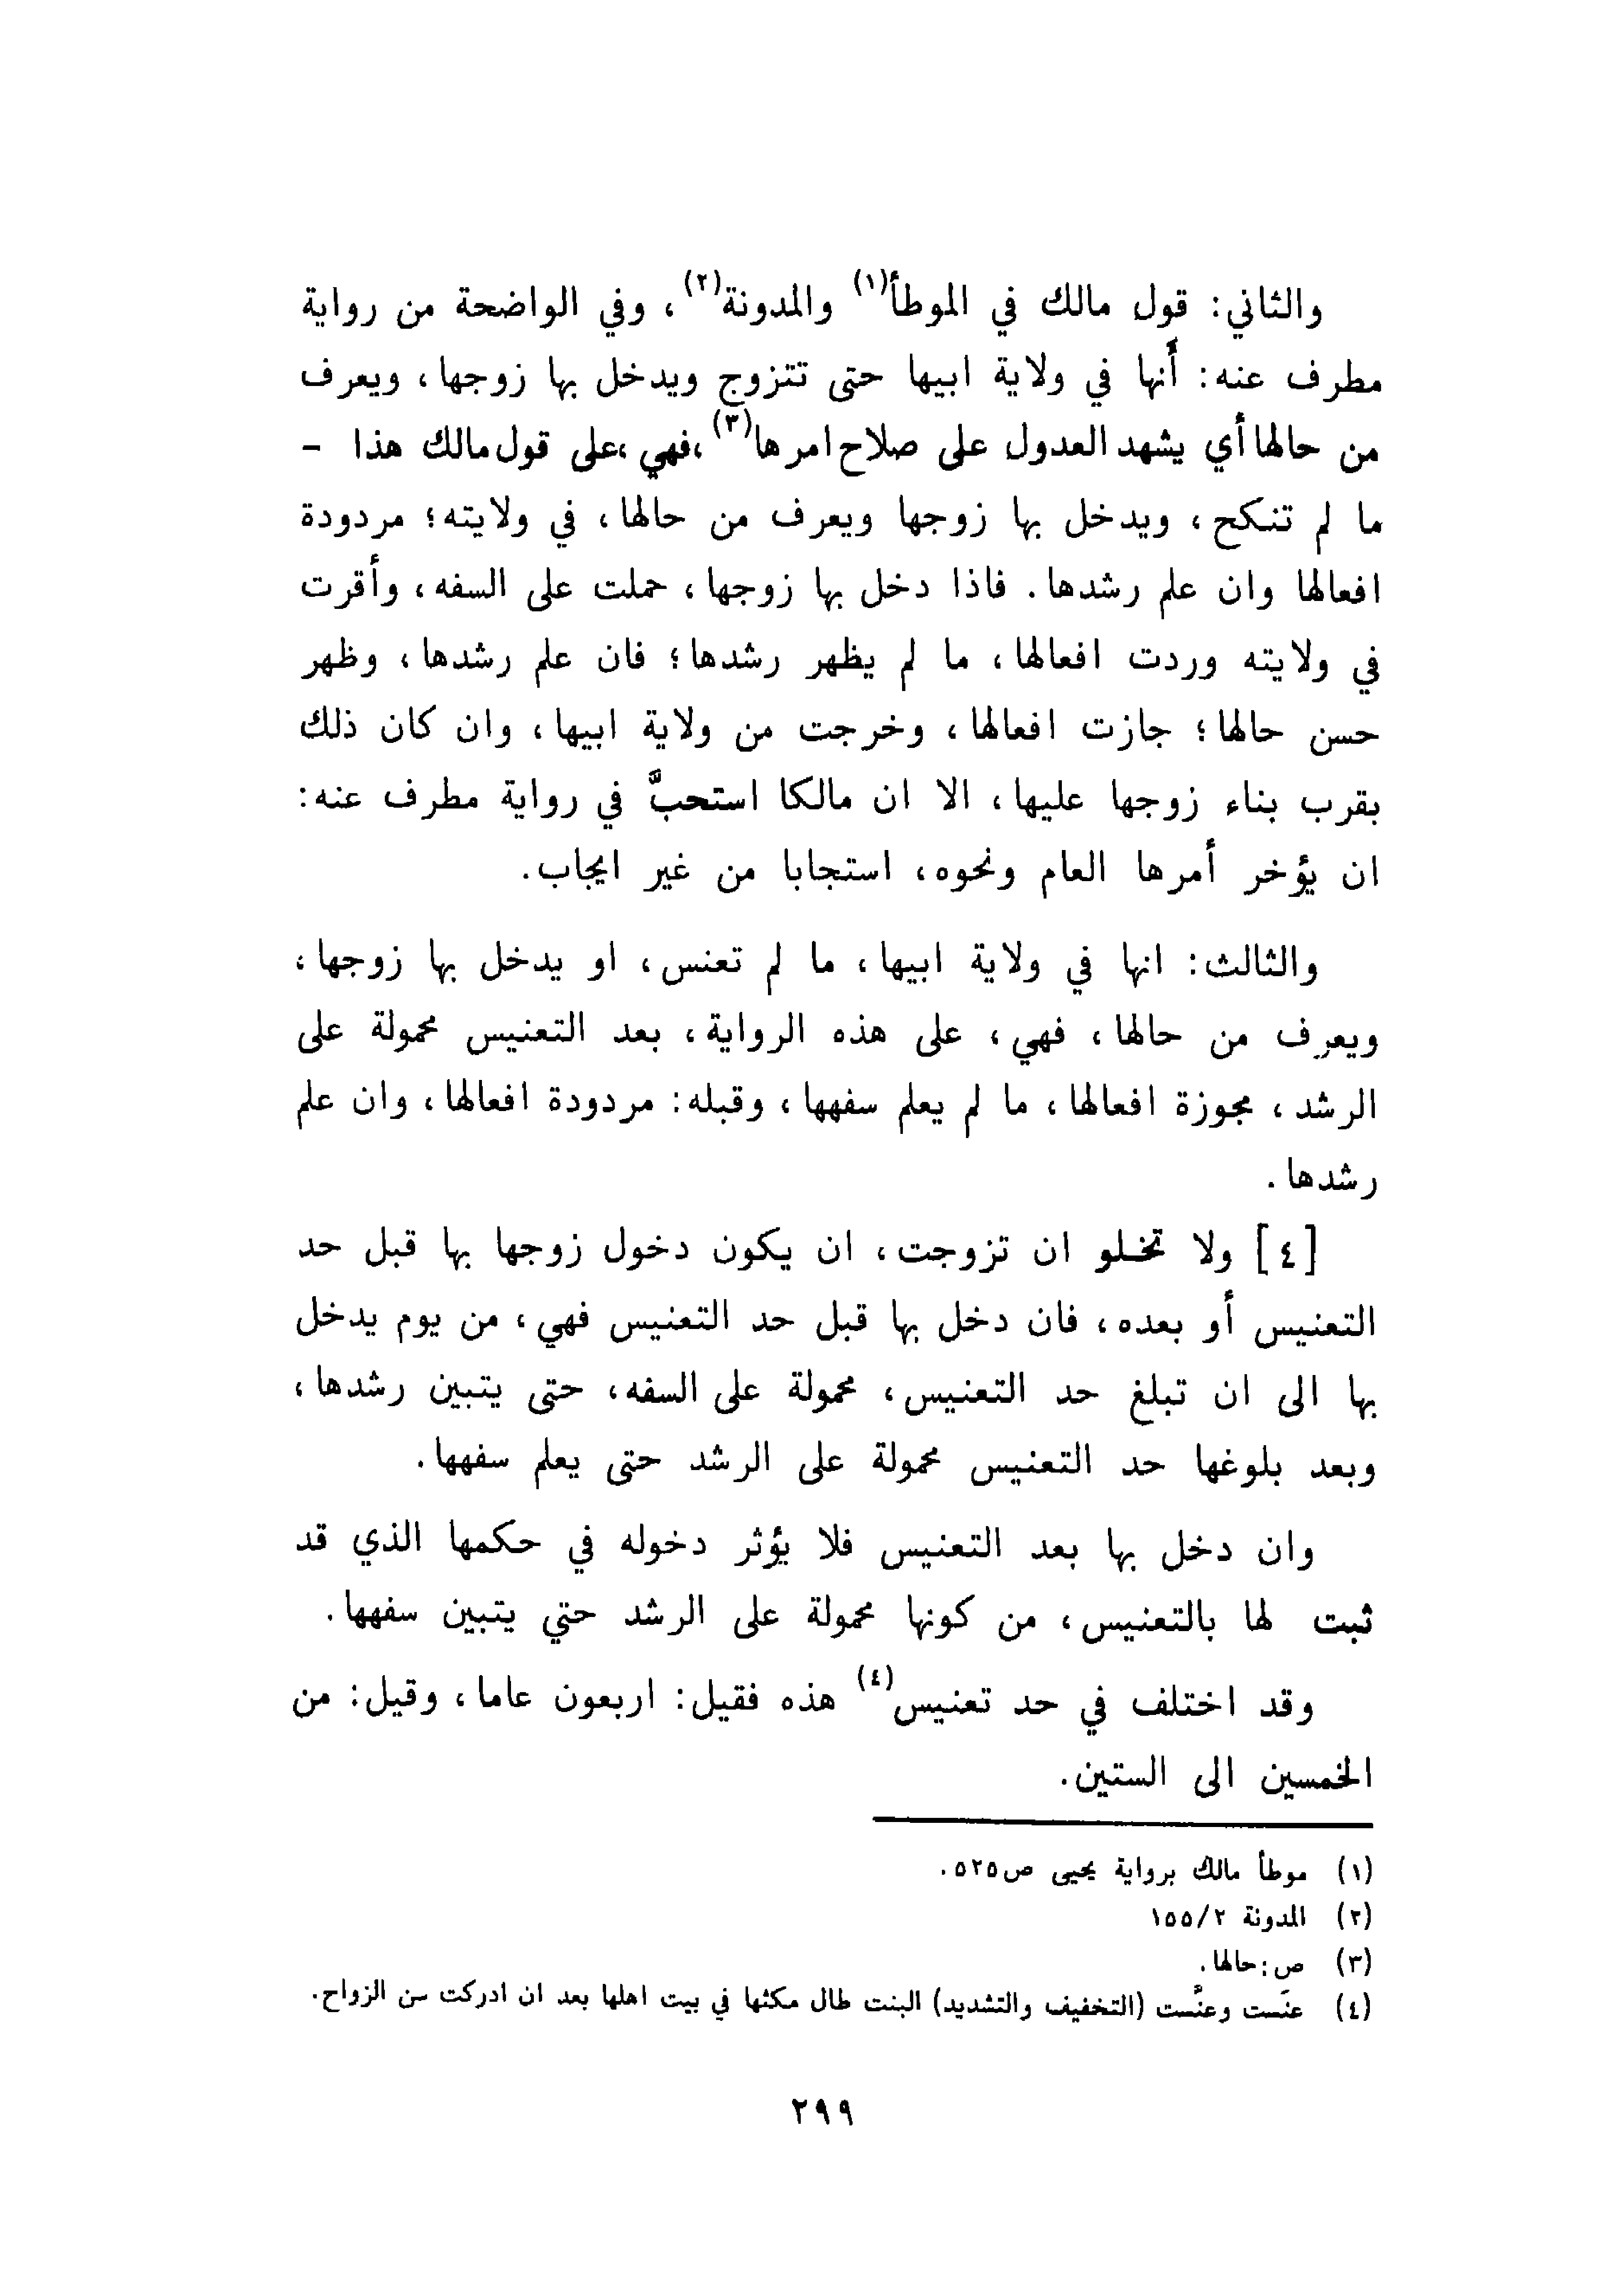 والثاني: قول مالك في الموطأ(١) والمدونة(٢)، وفي الواضحة من رواية
مطرف عنه: أَنها في ولاية ابيها حتى تتزوج ويدخل بها زوجها، ويعرف
من حالها أي يشهد العدول على صلاح امرها(٣)، فهي، على قول مالك هذا -
ما لم تنكح، ويدخل بها زوجها ويعرف من حالها، في ولايته؛ مردودة
افعالها وان علم رشدها. فاذا دخل بها زوجها، حملت على السفه، وأقرت
في ولايته وردت افعالها، ما لم يظهر رشدها؛ فان علم رشدها، وظهر
حسن حالها؛ جازت افعالها، وخرجت من ولاية ابيها، وان كان ذلك
بقرب بناء زوجها عليها، الا ان مالكا استحبَّ في رواية مطرف عنه:
ان يؤخر أمرها العام ونحوه، استجابا من غير ايجاب.
والثالث: انها في ولاية ابيها، ما لم تعنس، او يدخل بها زوجها،
ويعرف من حالها، فهي، على هذه الرواية، بعد التعنيس محمولة على
الرشد، مجوزة افعالها، ما لم يعلم سفهها، وقبله: مردودة افعالها، وان علم
رشدها.
[٤] ولا تخلو ان تزوجت، ان يكون دخول زوجها بها قبل حد
التعنيس أو بعده، فان دخل بها قبل حد التعنيس فهي، من يوم يدخل
بها الى ان تبلغ حد التعنيس، محمولة على السفه، حتى يتبين رشدها،
وبعد بلوغها حد التعنيس محمولة على الرشد حتى يعلم سفهها.
وان دخل بها بعد التعنيس فلا يؤثر دخوله في حكمها الذي قد
ثبت لها بالتعنيس، من كونها محمولة على الرشد حتي يتبين سفهها.
وقد اختلف في حد تعنيس(٤) هذه فقيل: اربعون عاما، وقيل: من
الخمسين الى الستين.
(١) موطأ مالك برواية يحيى ص٥٢٥.
(٢) المدونة ١٥٥/٢
(٣) ص: حالها.
(٤) عنَست وعنَّست (التخفيف والتشديد) البنت طال مكثها في بيت اهلها بعد ان ادركت سن الزواج.
٢٩٩